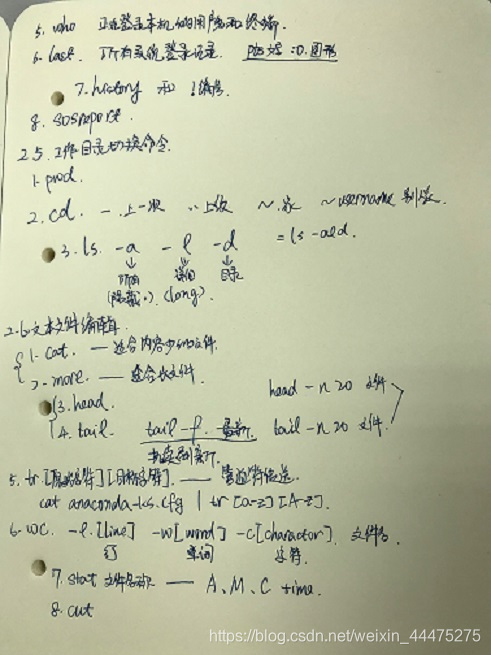 5. who 正在登录本机的用户和终端.
6. last 所有系统登录记录. :0.图形
7. history 和 !编号.
8. sosreport.
2.5. 工作目录切换命令.
1. pwd.
2. cd. - 上一次 .. 上级 ~家 ~username 别家.
3. ls. -a -l -d = ls -ald.
所有 详细 目录
(隐藏.) (long).
2.6. 文本文件编辑
1. cat. — 适合内容少的文件.
2. more. — 适合长文件.
head -n 20 文件
3. head.
4. tail. tail -f. 最新. tail -n 20 文件.
持续刷新.
5. tr [原始字符][目标字符]. — 管道符传送.
cat anaconda-ks.cfg | tr [a-z] [A-Z].
6. wc. -l.[line] -w[word] -c[charactor]. 文件名.
行 单词 字符
7. stat 文件名称 — A、M、C time.
8. cut
https://blog.csdn.net/weixin_44475275